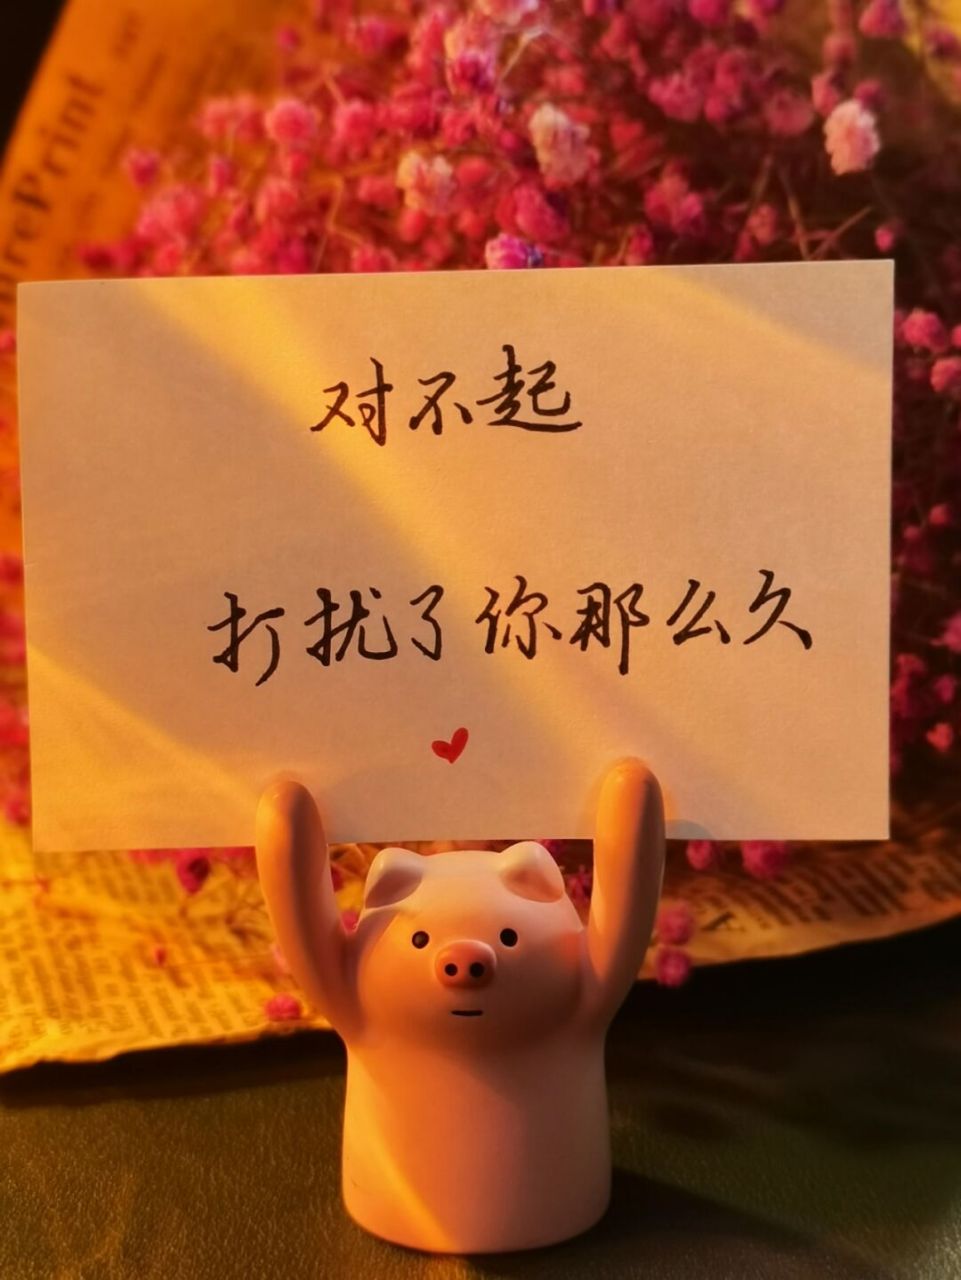 对不起
打扰了你那么久